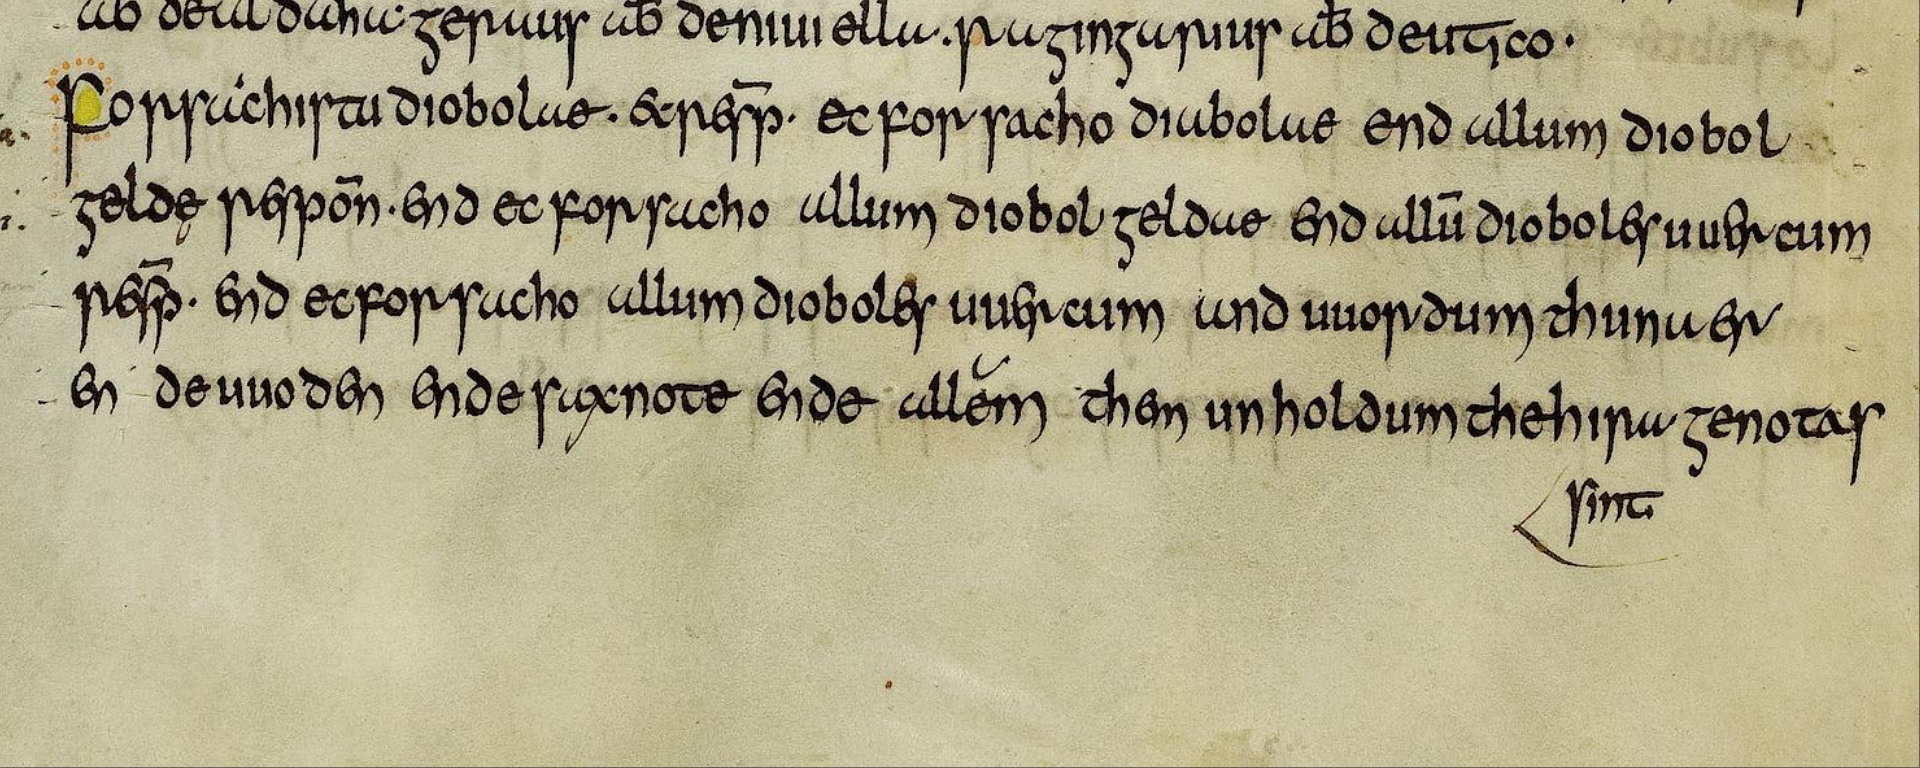 ab deuldahu. gerauus ab̅ deniuiella. raginga rius ab̅ deut̅ico.
Forsáchistu diobolae. & resp̅. ec forsacho diabolae end allum diobol
geldę respon̅. end ec forsacho allum diobol geldae end allu̅ dioboles uuercum
resp̅. end ec forsacho allum dioboles uuercum and uuordum thunaer
en de uuoden ende saxnote ende allem then unholdum the hira genotas
sint